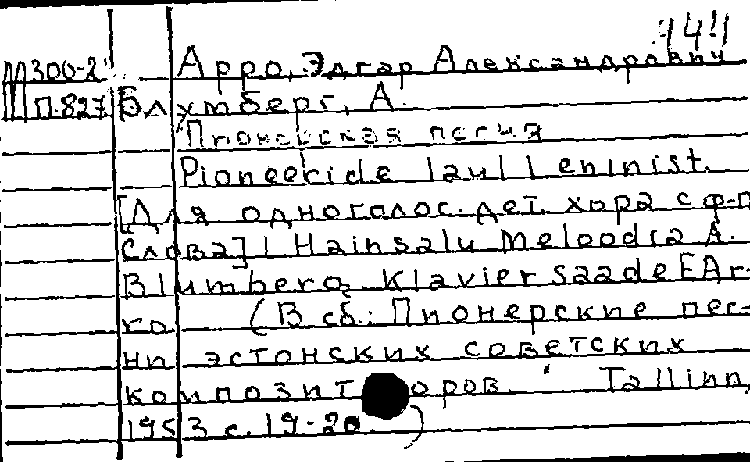 144
М300-2 Арро, Эдгар Александрович
П.827 Блумберг, А.
Пионерская песня
Pioneeride laul Leninist.
[Для одноголос. дет. хора с ф-п
слова] L Hainsalu Meloodia A.
Blumberg Klavier saade E Ar-
ro (В сб.: Пионерские пес-
ни эстонских советских
композиторов. Tallinn,
1953 с. 19-20)